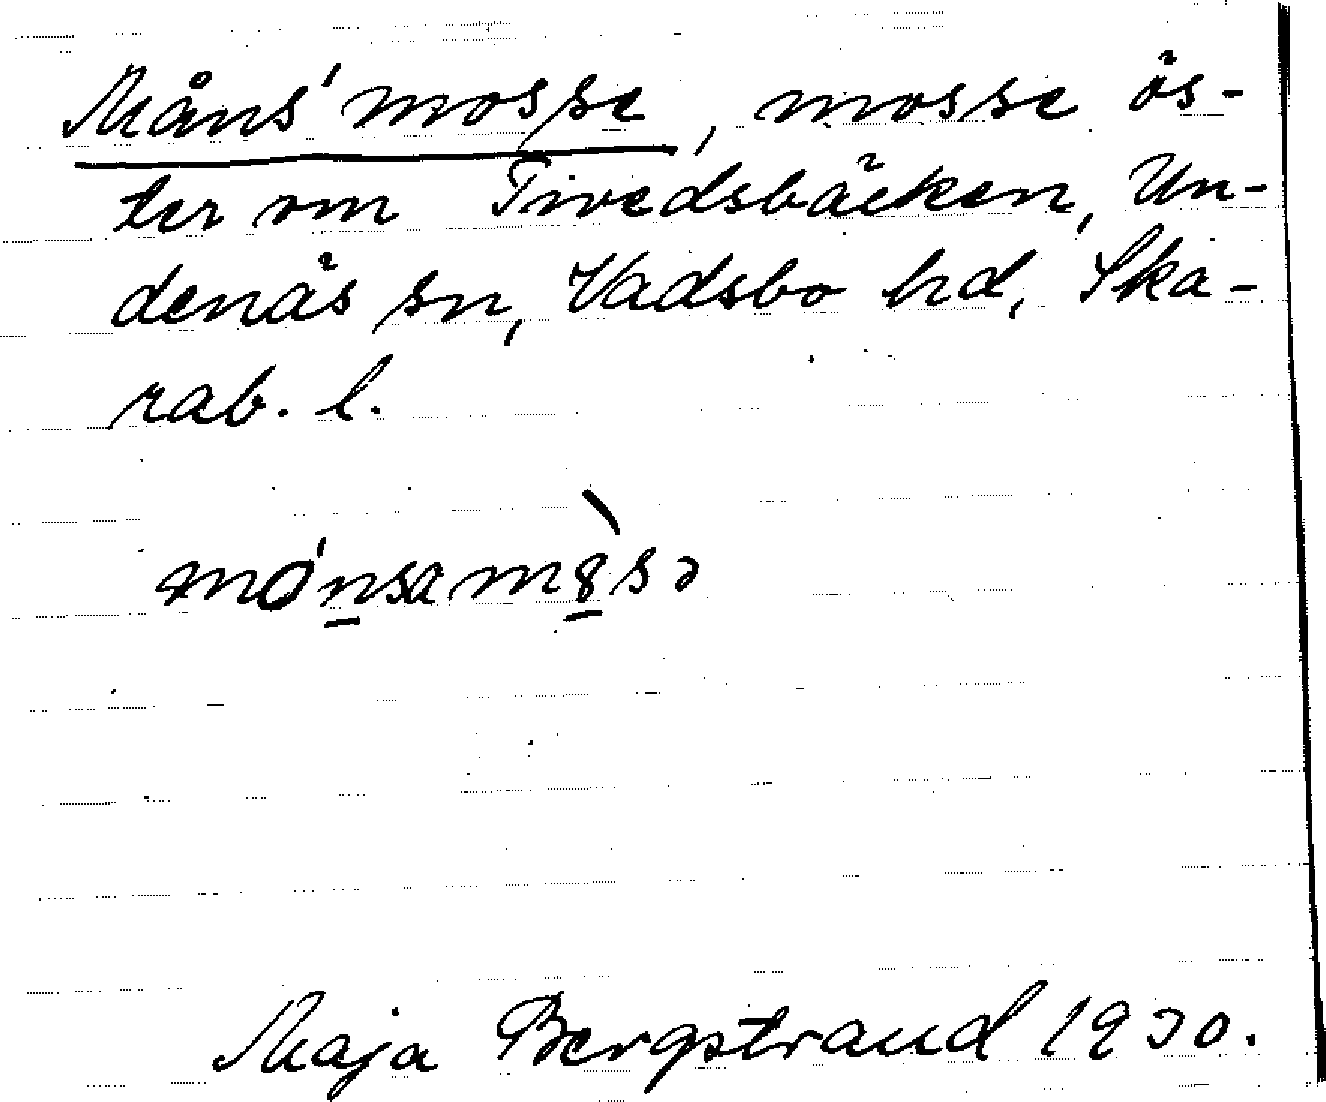 Måns' mosse, mosse ös-
ter om Tivedsbäcken, Un-
denäs sn, Vadsbo hd, Ska-
rab. l.
mónsamòsə
Maja Bergstrand 1930.